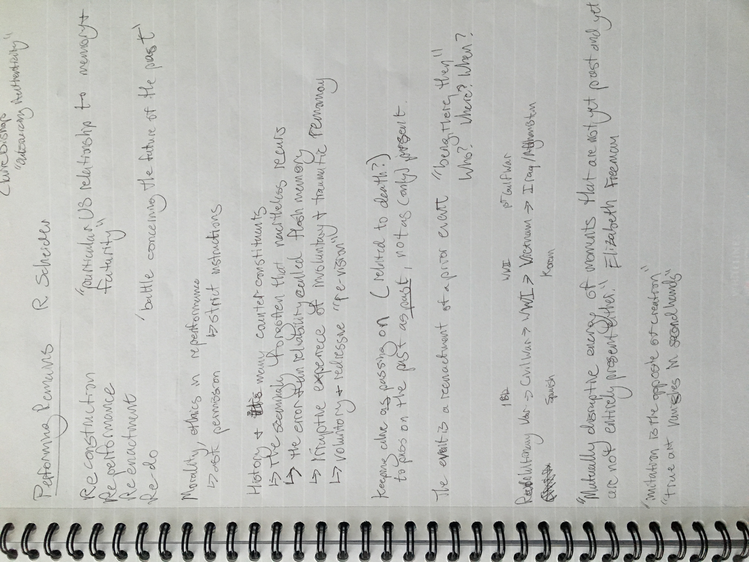 Claire Bishop
"outsourcing Authenticity"
Performing Remains R Scheider
Reconstruction "particular US relationship to memory +
Reperformance futurity"
Reenactment
Re do 'battle concerning the future of the past'
Morality, ethics in reperformance
↳ ask permission ↳ strict instructions
History + many counter-constituents
↳ the seemingly forgotten that nevertheless recurs
↳ the error-ran reliability called flesh memory
↳ the experience of involuntary + traumatic remaining
↳ voluntary + redressive "re-vision"
Keeping alive as passing on (related to death?)
to pass on the past as past, not as (only) present.
The event is a reenactment of a prior event "being there, then"
Who? Where? When?
1812 WWII 1st Gulf War
Revolutionary War → Civil War → WWI → Vietnam → Iraq/Afghanistan
Spanish Korean
"Mutually disruptive energy of moments that are not yet past and yet
are not entirely present either." Elizabeth Freeman
"imitation is the opposite of creation"
"true art vanishes in second hands"